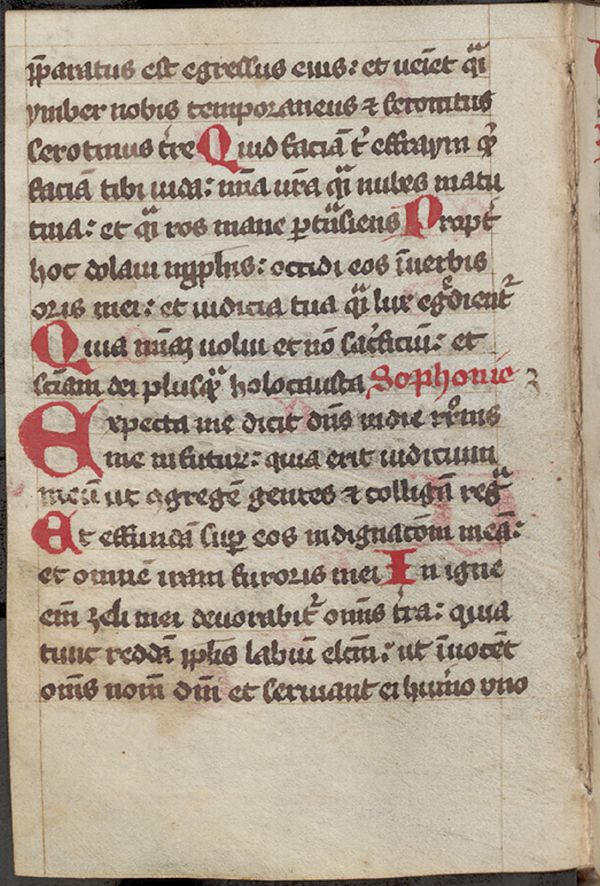 p̄paratus est egressus eius: et ueiet qͣi
ymber nobis temporaneus ⁊ serotinus
serotinus t̄re Quid faciā t' effraym qͥ
faciā tibi iuda: mīa ur̄a qͣi nubes matu
tina: et qͣi ros mane ꝑtͣnsiens Propt'
hoc dolaui in ꝓphis: occidi eos ī uerbis
oris mei: et iudicia tua qͣi lux egͤdient᷑
Quia mīaꝫ uolui et nō sac̄ficiū: et
sciam dei plusqͣ holocausta Sophonie 3
Expecta me dicit dn̄s in die rr̄onis
me in futur̄: quia erit iudicium
meū ut ꝯgregē gentes ⁊ colligā regͣ
Et effundā suꝑ eos indignacōm meā:
et omnē iram furoris mei In igne
em̄ zeli mei deuorabit᷑ om̄is t̄ra: quia
tunc reddā ꝓplis labiū elcm̄: ut īuocēt
om̄s nom̄ dn̄i et seruiant ei hum̄o vno